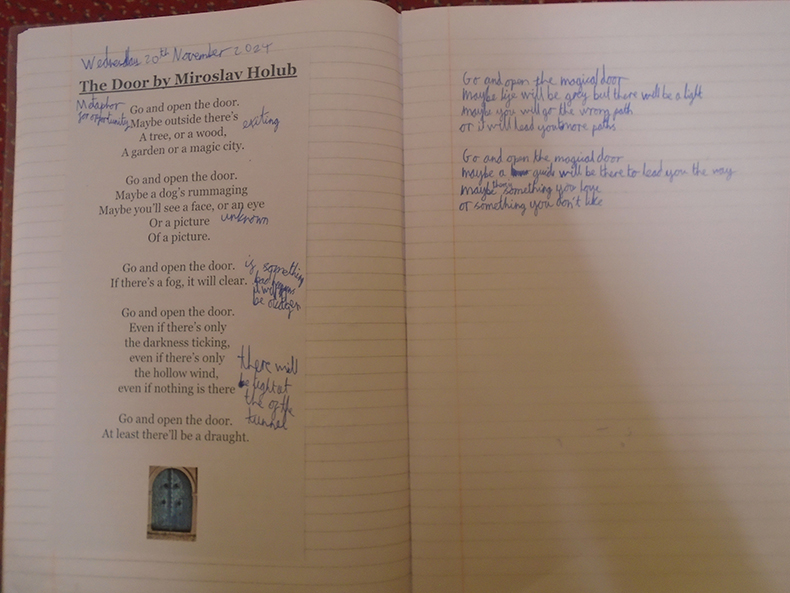 Wednesday 20th November 2024
The Door by Miroslav Holub
Metaphor
for opportunity
Go and open the door.
Maybe outside there's
exiting
A tree, or a wood,
A garden or a magic city.
Go and open the door.
Maybe a dog's rummaging
Maybe you'll see a face, or an eye
Or a picture
unknown
Of a picture.
Go and open the door.
If there's a fog, it will clear.
is something
bad
it will
be
Go and open the door.
Even if there's only
the darkness ticking,
even if there's only
the hollow wind,
even if nothing is there
there will
be light at
the of the
tunnel
Go and open the door.
At least there'll be a draught.
Go and open the magical door
Maybe life will be grey but there will be a light
maybe you will go the wrong path
or it will lead you to more paths
Go and open the magical door
maybe a guide will be there to lead you the way
maybe theres something you love
or something you don't like